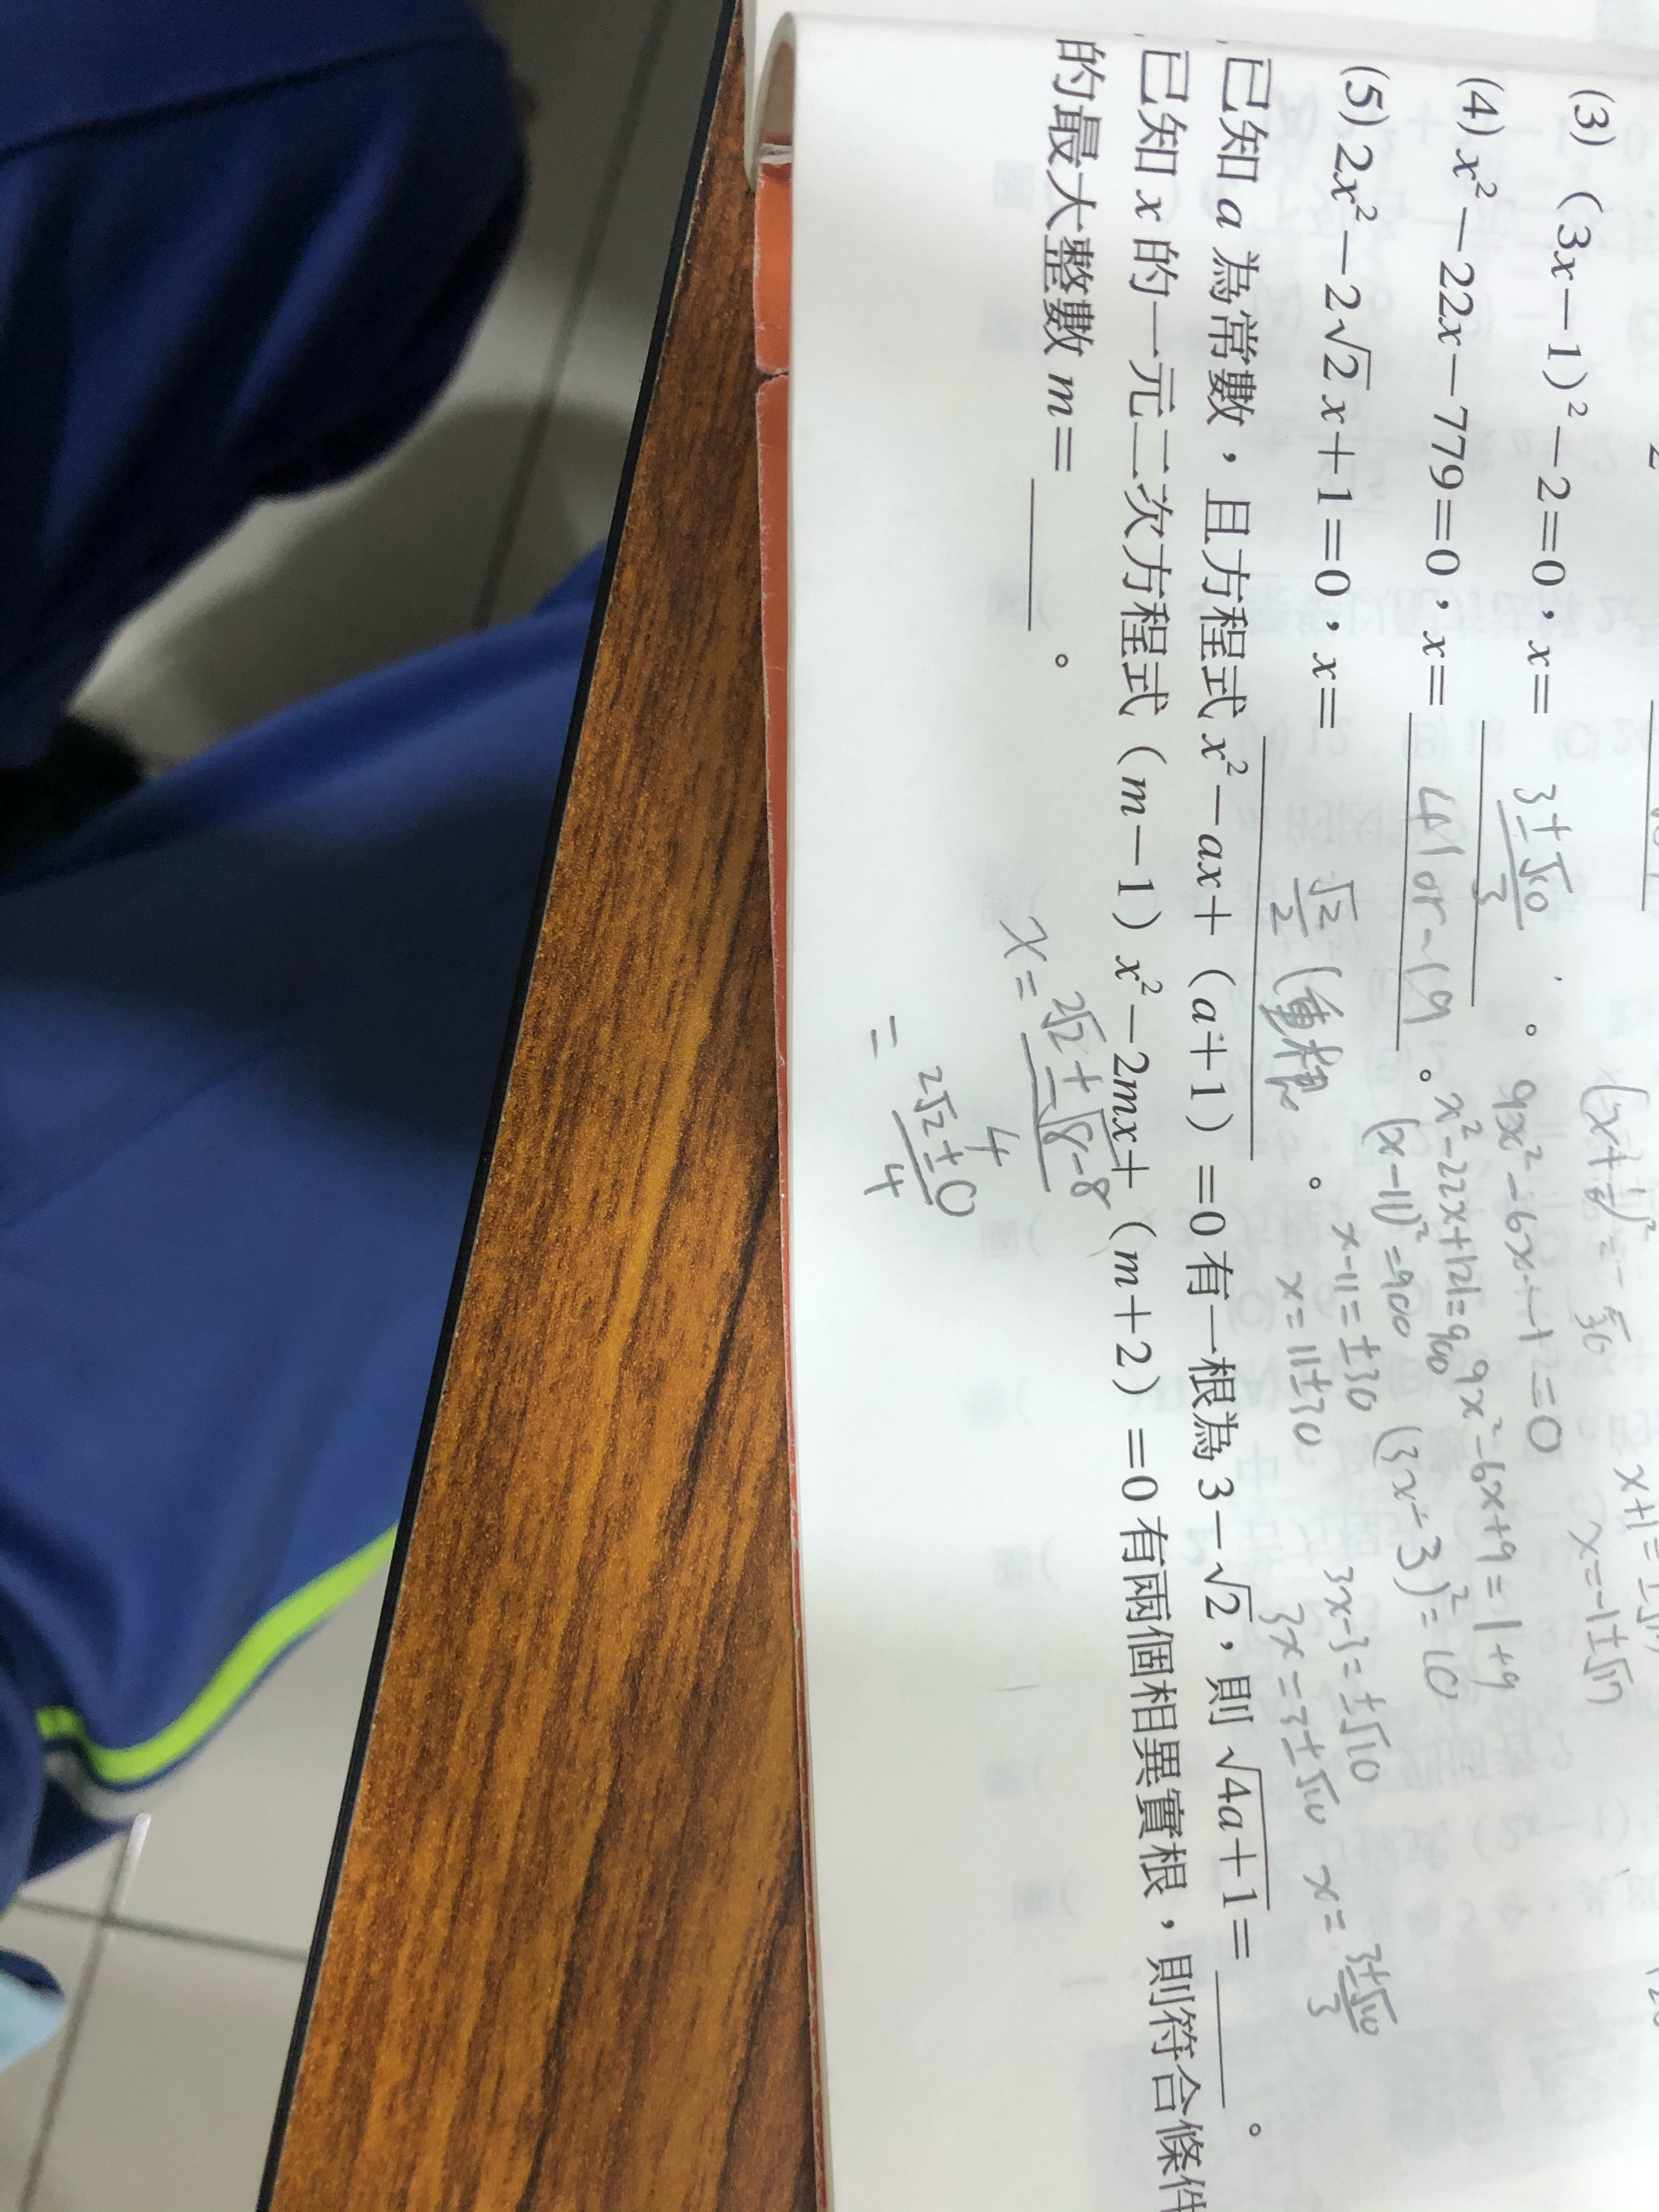 (x+1/6)²=
x+1=±√17
x=-1±√17
(3) (3x－1)²－2=0，x= 3±√10/3 。
9x²-6x-1=0
9x²-6x+9=1+9
(3x-3)²=10
3x-3=±√10
3x=3±√10 x=3±√10/3
(4) x²－22x－779=0，x= 41or-19 。
x²-22x+121=900
(x-11)²=900
x-11=±30
x=11±30
(5) 2x²－2√2x+1=0，x= √2/2(重根) 。
已知 a 為常數，且方程式 x²－ax+（a+1）=0 有一根為 3－√2，則 √4a+1= 。
已知 x 的一元二次方程式（m－1）x²－2mx+（m+2）=0 有兩個相異實根，則符合條件
的最大整數 m= 。
x=2√2±√8-8/4
=2√2±0/4